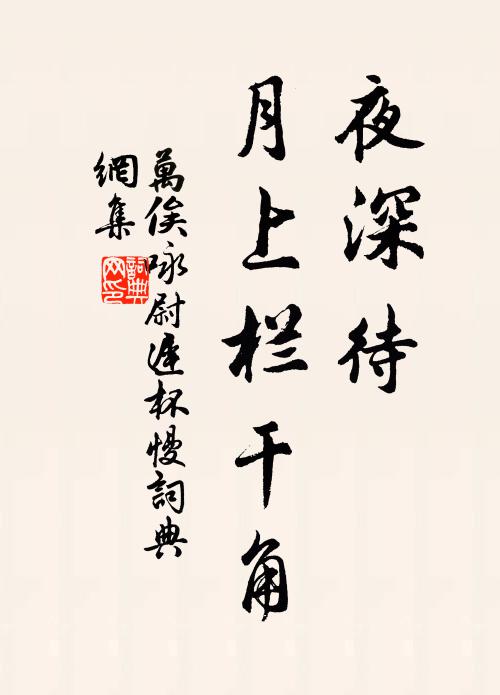 夜深待
月上栏干角
萬俟咏尉遲杯慢詞典
網集
詞典
网印